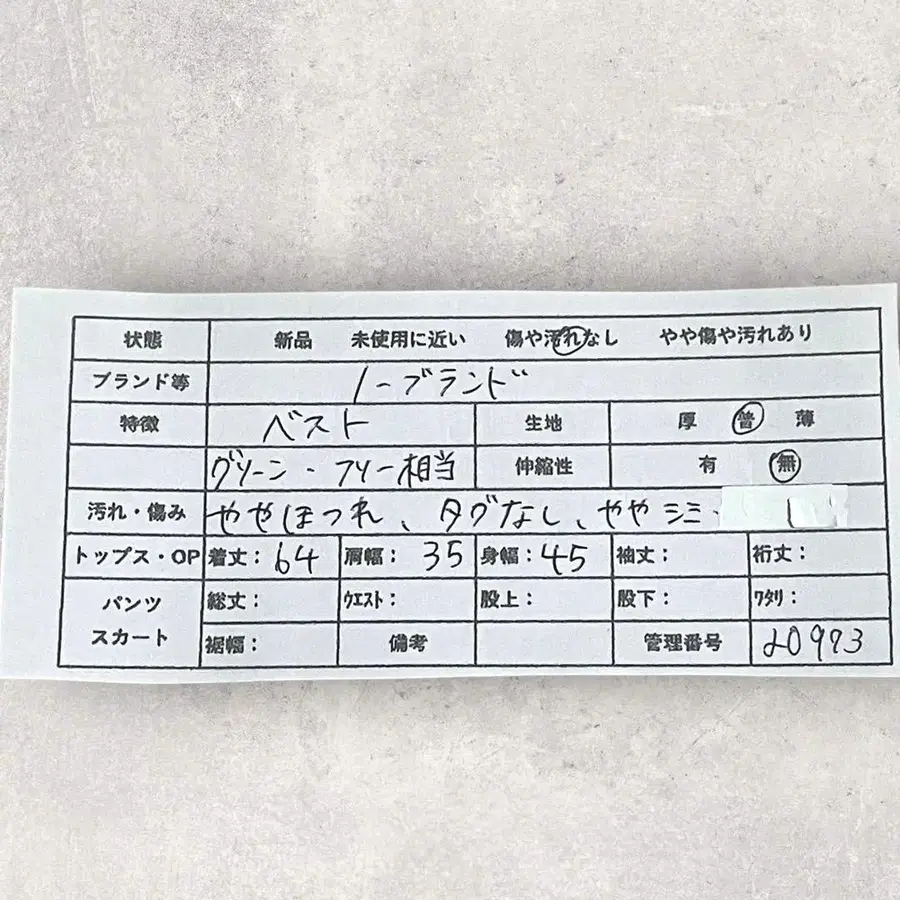 状態 新品 未使用に近い 傷や汚れなし やや傷や汚れあり
ブランド等 ノーブランド
特徴 ベスト 生地 厚 普 薄
グリーン・フリー相当 伸縮性 有 無
汚れ・傷み ややほつれ、タグなし、ややシミ・
トップス・OP 着丈：64 肩幅：35 身幅：45 袖丈： 裄丈：
パンツ 総丈： ウエスト： 股上： 股下： ワタリ：
スカート 裾幅： 備考 管理番号 20973